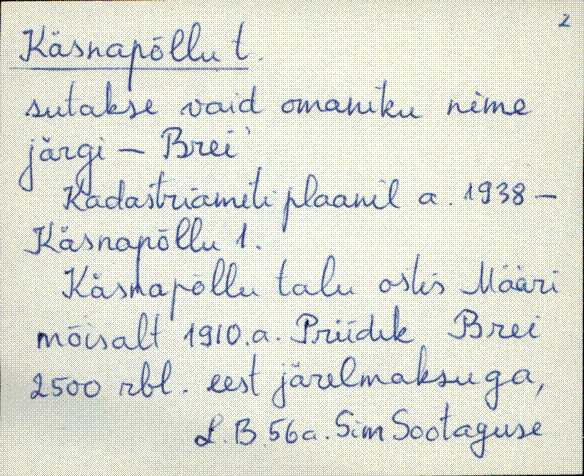 2
Käsnapõllu t.
sutakse vaid omaniku nime
järgi – Brei'
Kadastriameti plaanil a. 1938 –
Käsnapõllu 1.
Käsnapõllu talu ostis Määri
mõisalt 1910.a. Priidik Brei
2500 rbl. eest järelmaksuga,
L.B. 56a. Sim Sootaguse